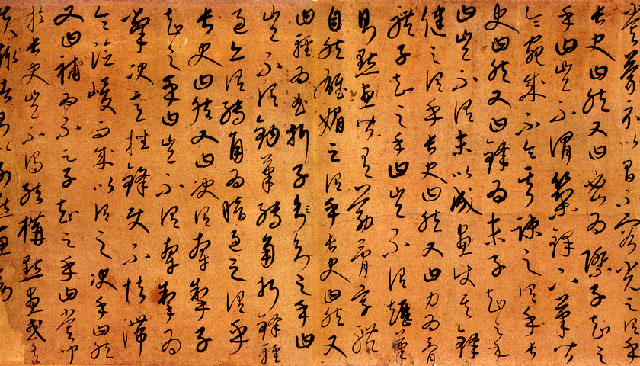 嘗蒙示以間不容光之謂乎
長史曰然又曰密為際子知之
乎曰豈不謂築鋒下筆皆
令宛成不令其疎之謂乎長
史曰然又曰鋒為末子知之乎
曰豈不謂末以成畫使其鋒
健之謂乎長史曰然又曰力為骨
體子知之乎曰豈不謂趯筆
則點畫皆有筋骨字體
自然雄媚之謂乎長史曰然又
曰輕為曲折子知之乎曰
豈不謂鉤筆轉角折鋒輕
過亦謂轉角為暗過之謂乎
長史曰然又曰決謂牽掣子
知之乎曰豈不謂牽掣為
決意挫鋒使不怯滯
令險峻而成以謂之決乎曰然
又曰補為不足子知之乎曰嘗聞
於長史豈不謂結構點畫或有
失趣者則以別點畫